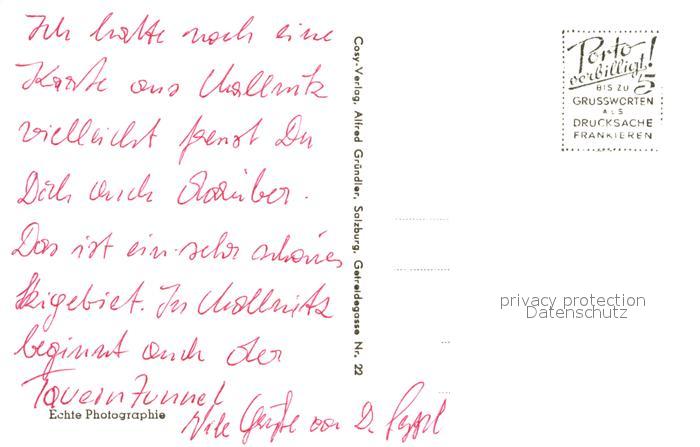 Ich hatte noch eine
Karte aus Mallnitz
vielleicht freust Du
Dich auch darüber.
Das ist ein sehr schönes
Skigebiet. In Mallnitz
beginnt auch der
Tauerntunnel
Viele Grüße von D.
Echte Photographie
Cosy-Verlag, Alfred Gründler, Salzburg, Getreidegasse Nr. 22
Porto
verbilligt!
BIS ZU 5
GRUSSWORTEN
ALS
DRUCKSACHE
FRANKIEREN
privacy protection
Datenschutz